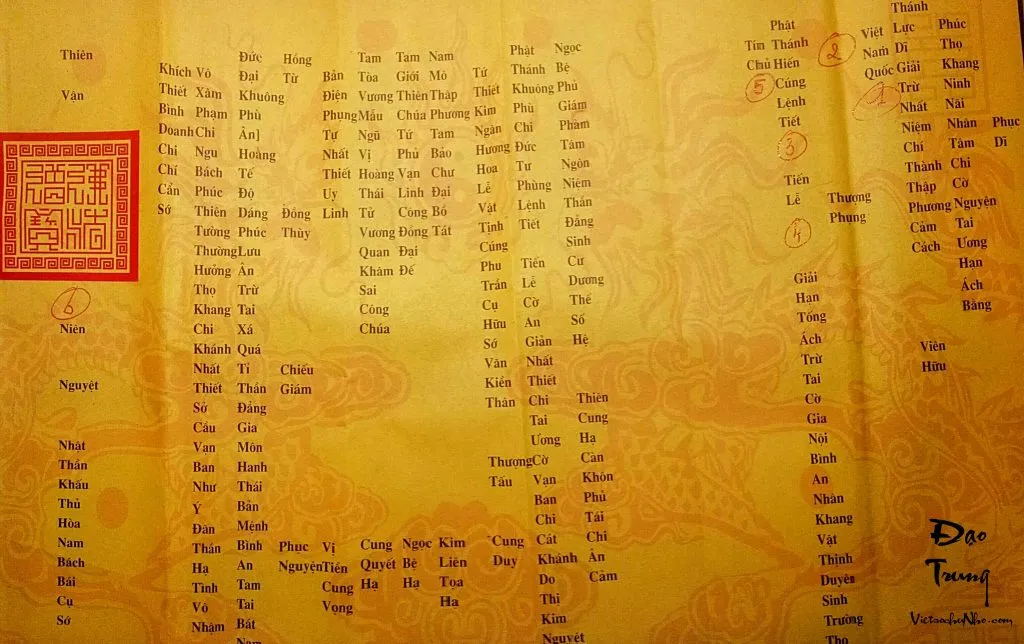 Phục Dĩ
Phúc Thọ Khang Ninh Nãi Nhân Tâm Chi Cờ Nguyện Tai Ương Hạn Ách Băng
Thánh Lực Dĩ Giải Trừ Nhất Niệm Chí Thành Thập Phương Cảm Cách
Viên Hữu
1
Việt Nam Quốc
2
Thượng Phụng
Phật Thánh Hiến Cúng Lệnh Tiết
3
Tiến Lễ
4
Giải Hạn Tống Ách Trừ Tai Cờ Gia Nội Bình An Nhân Khang Vật Thịnh Duyên Sinh Trường Thọ
Tín Chủ
5
Ngọc Bệ Phủ Giám Phẩm Tâm Ngôn Niệm Thần Đẳng Sinh Cư Dương Thế Số Hệ
Thiên Cung Hạ Càn Khôn Phủ Tái Chi Ân Cảm
Phật Thánh Khuông Phù Chi Đức Tư Phùng Lệnh Tiết
Tiến Lễ Cờ An Giản Nhất Thiết Chi Tai Ương Cờ Vạn Ban Chi Cát Khánh Do Thị Kim Nguyệt
Tứ Thiết Kim Ngân Hương Hoa Lễ Vật Tịnh Cúng Phu Trần Cụ Hữu Sớ Văn Kiền Thân
Thượng Tấu
Cung Duy
Nam Mô Thập Phương Tam Bảo Chư Đại Bồ Tát
Kim Liên Tọa Hạ
Tam Giới Thiên Chúa Tứ Phủ Vạn Linh Công Đồng Đại Đế
Ngọc Bệ Hạ
Tam Tòa Vương Mẫu Ngũ Vị Hoàng Thái Tử Vương Quan Khâm Sai Công Chúa
Cung Quyết Hạ
Bản Điện Phụng Tự Nhất Thiết Uy Linh
Vị Tiền Cung Vọng
Hồng Từ
Đồng Thùy
Chiếu Giám
Phục Nguyện
Đức Đại Khuông Phù Ân] Hoằng Tế Độ Dáng Phúc Lưu Ân Trừ Tai Xá Quá Tỉ Thần Đẳng Gia Môn Hanh Thái Bản Mệnh Bình An Tam Tai Bất Nam
Vô Xâm Phạm Chi Ngu Bách Phúc Thiên Tường Thường Hưởng Thọ Khang Chi Khánh Nhất Thiết Sở Cầu Vạn Ban Như Ý Đàn Thần Hạ Tình Vô Nhậm
Khích Thiết Bình Doanh Chi Chí Cẩn Sớ
Thiên Vận
6
Niên
Nguyệt
Nhật Thần Khấu Thủ Hòa Nam Bách Bái Cụ Sớ
Đạo Trung
VietsochuNho.com